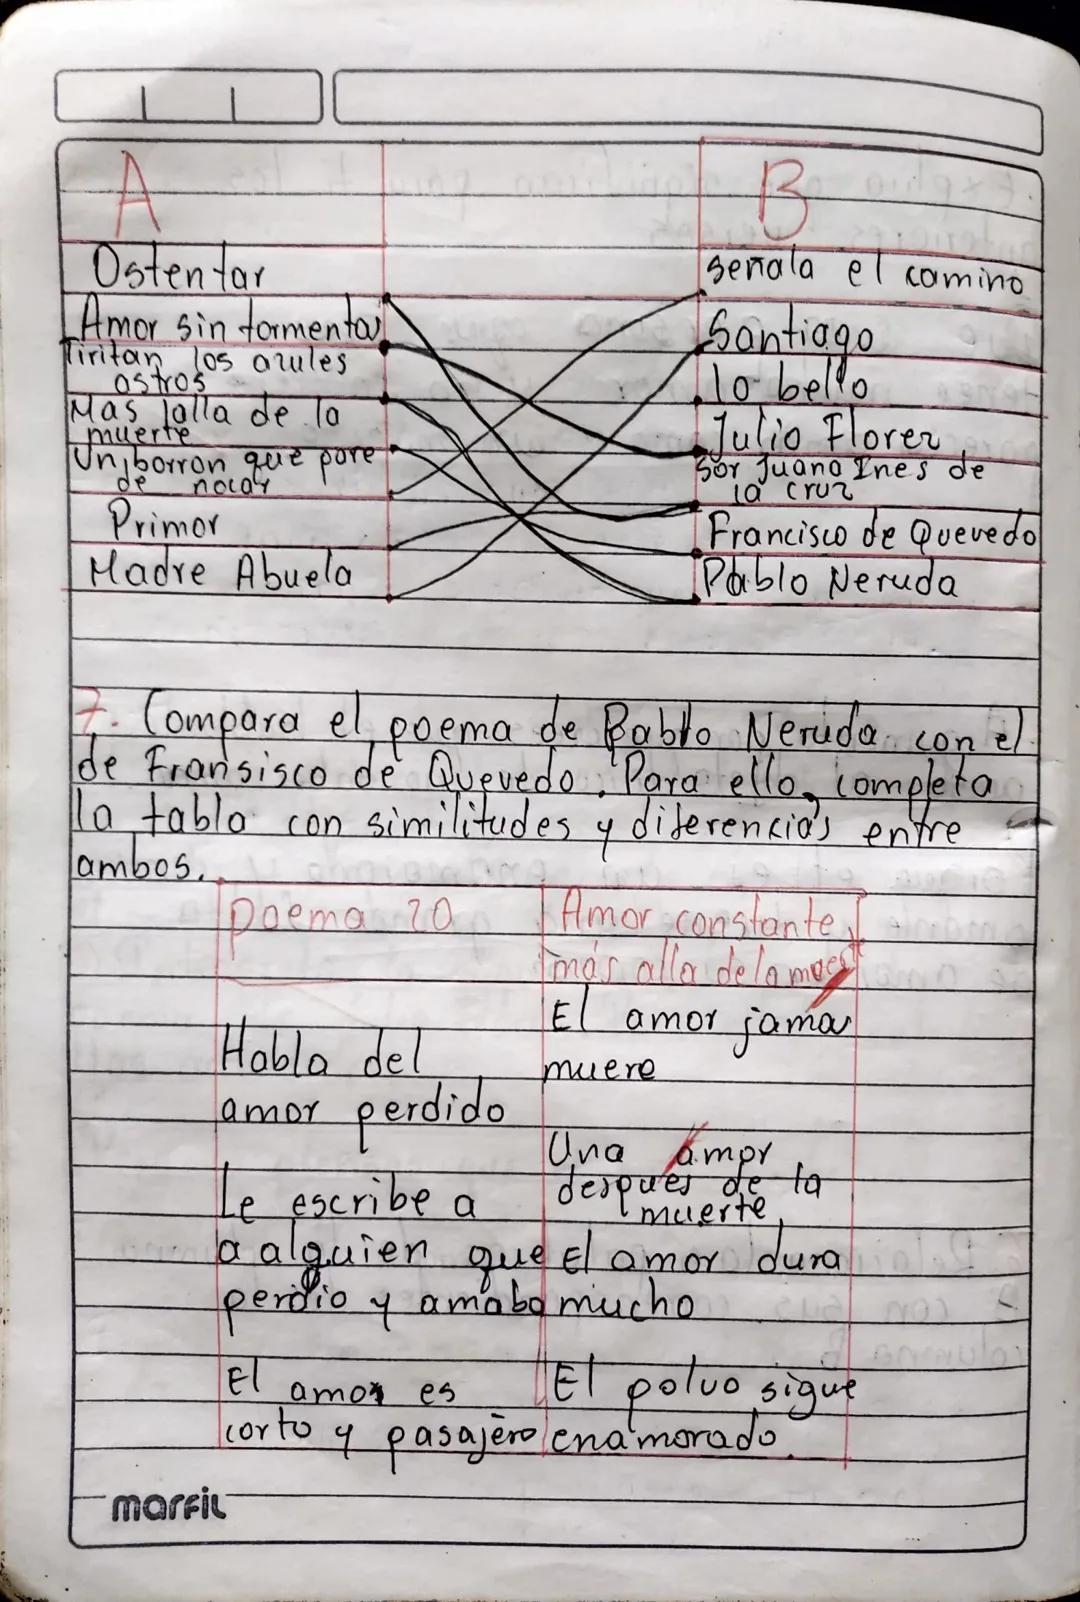 A B
Ostentar
señala el camino
Amor sin tormentas
Santiago
Tiritan los azules
astros
lo bello
Mas lalla de la
muerte
Julio Florez
Un borron que pare
de nocar
Sor Juana Ines de
la cruz
Primor
Francisco de Quevedo
Madre Abuela
Pablo Neruda
7. Compara el poema de Pablo Neruda con el
de Fransisco de Quevedo. Para ello, completa
la tabla con similitudes y diferencias entre
ambos.
poema 20
Amor constante,
más alla de la muert
El amor jamas
muere
Habla del
amor perdido
Una amor
despues de la
muerte
Le escribe a
a alguien que
perdio y amaba
El amor dura
mucho
El amor es
corto y pasajero
El polvo sigue
enamorado
marfil